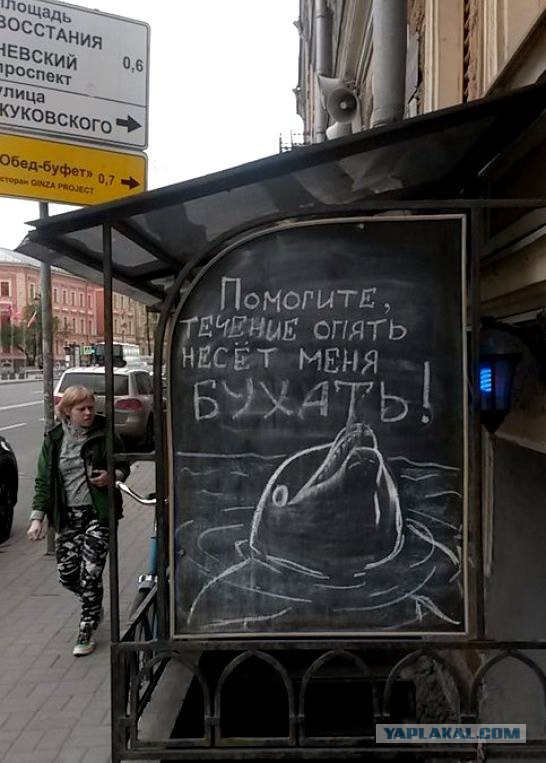 площадь
ВОССТАНИЯ
НЕВСКИЙ
проспект
0,6
улица
ЖУКОВСКОГО
Обед-буфет» 0,7
ресторан GINZA PROJECT
Помогите,
течение опять
несёт меня
БУХАТЬ!
YAPLAKAL.COM